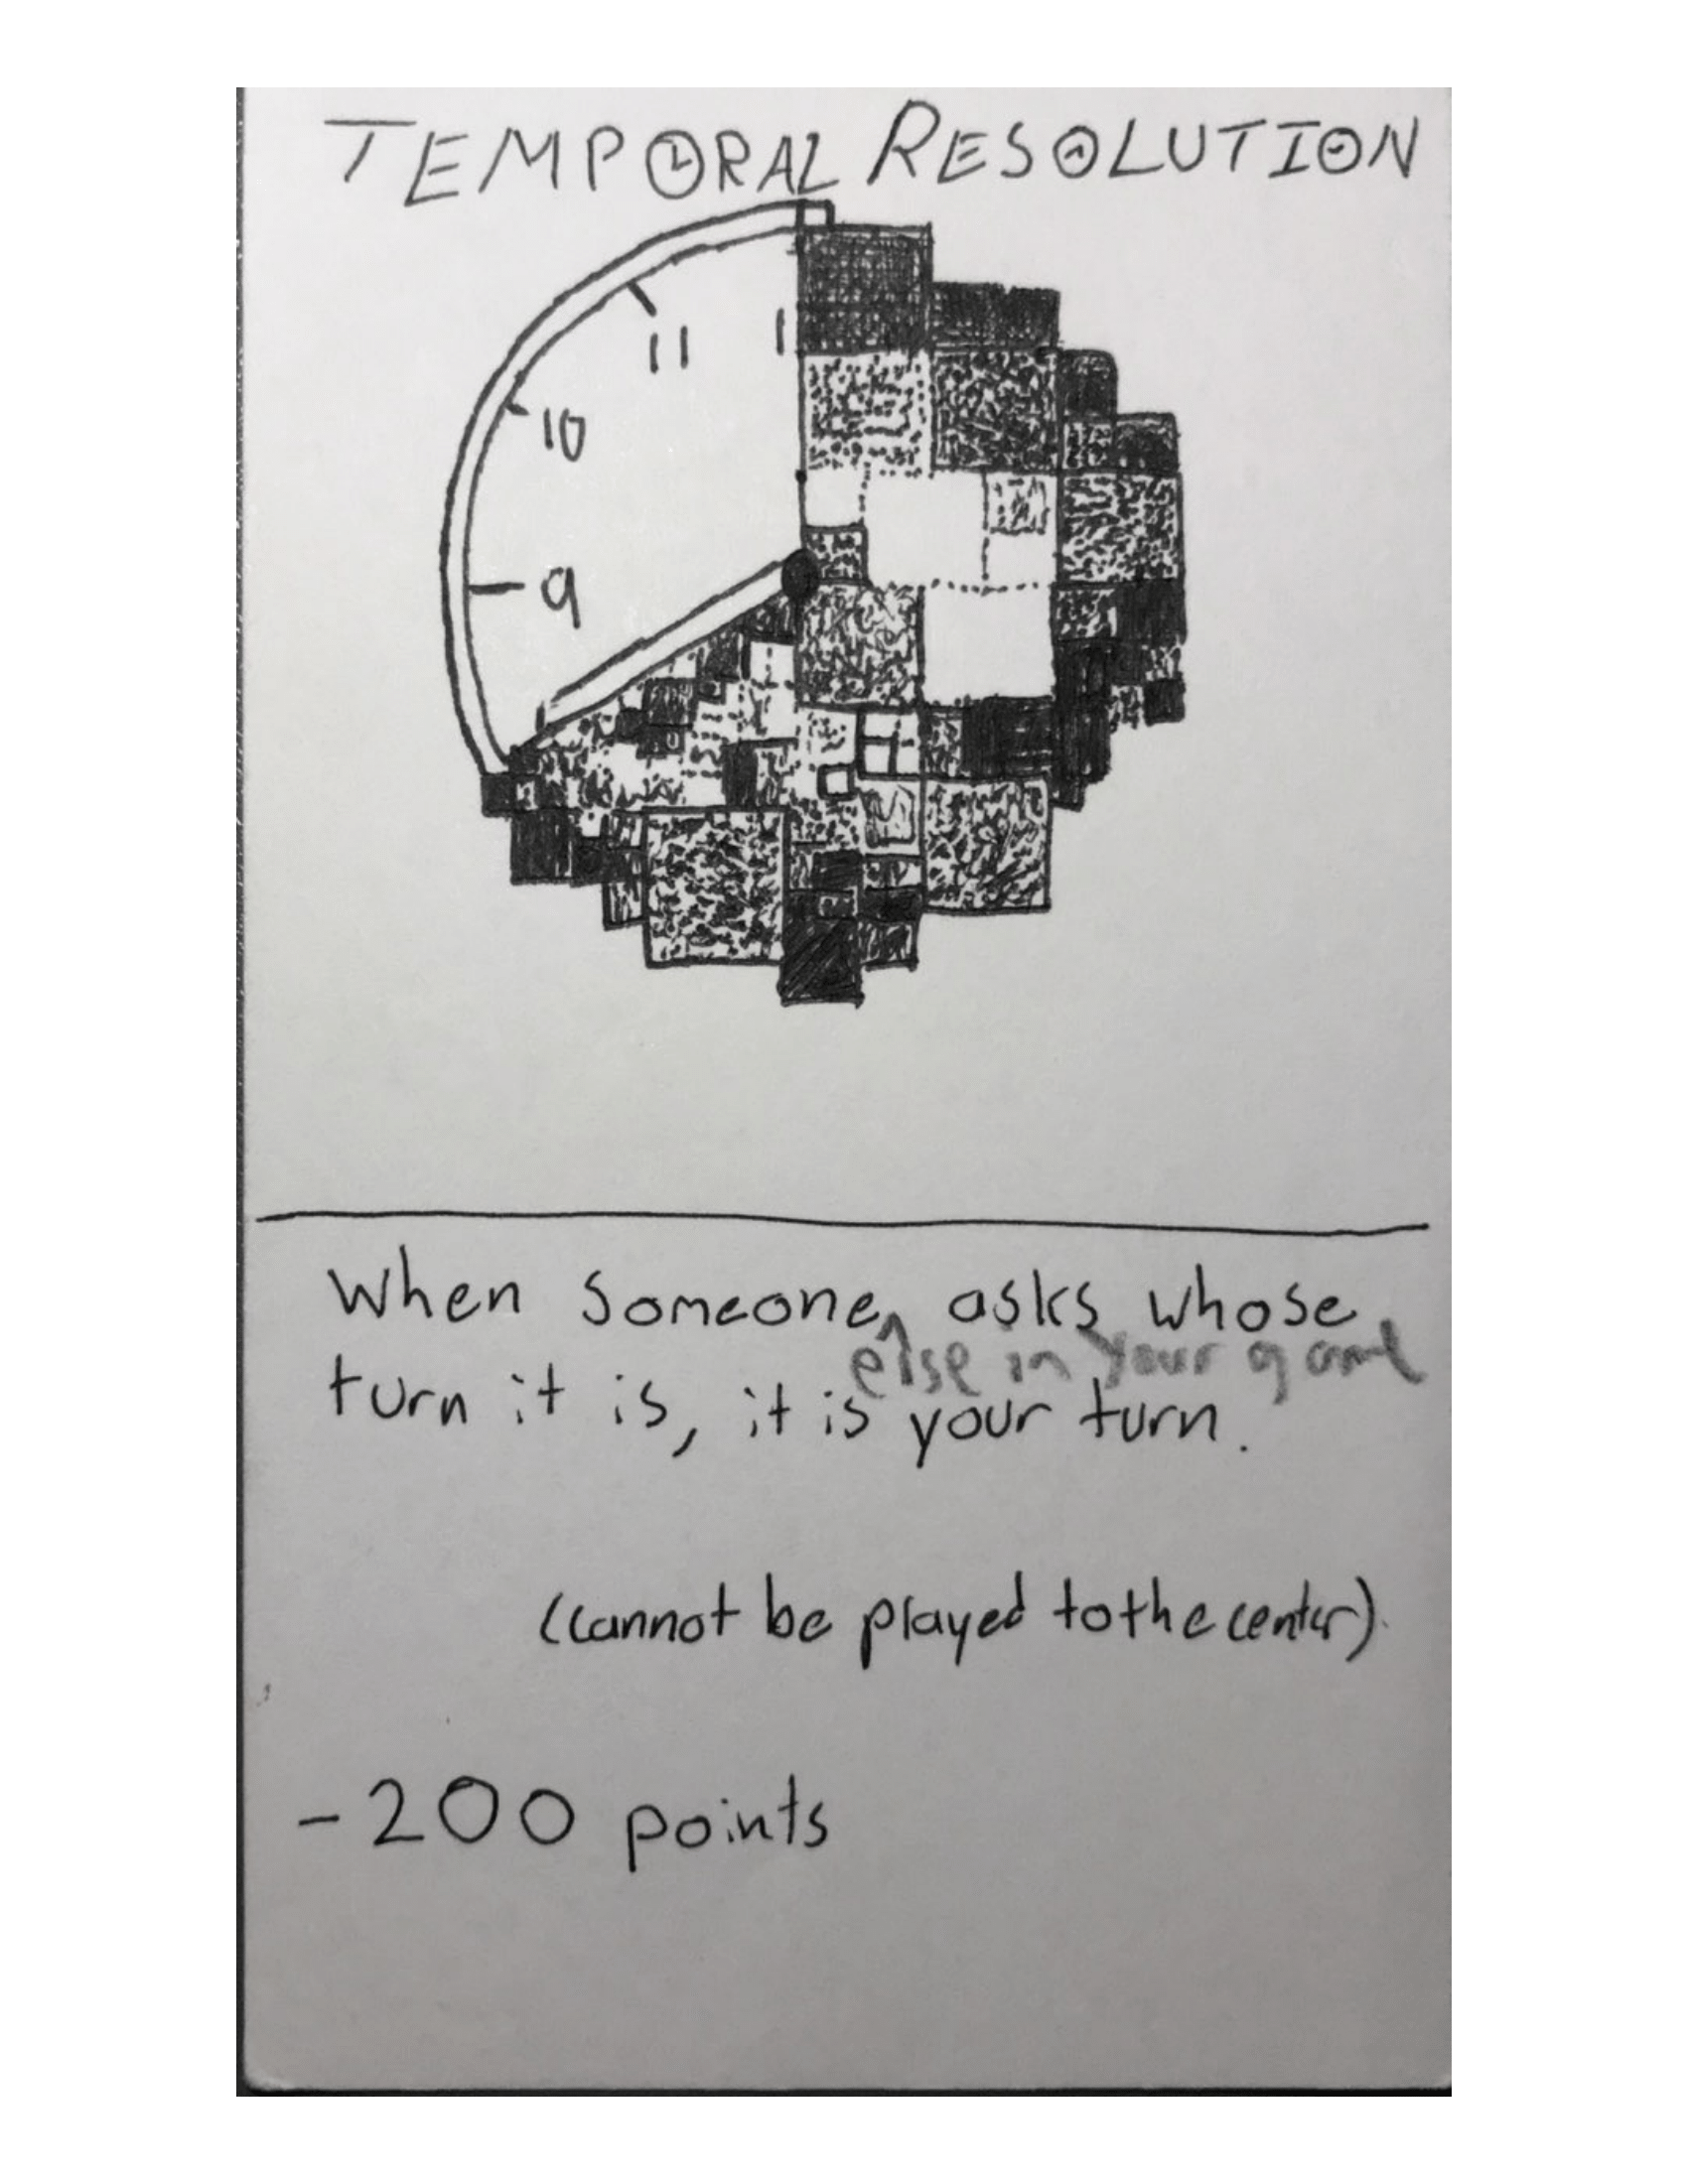 TEMPORAL RESOLUTION
11
1
10
9
When someone asks whose
else in your game
turn it is, it is your turn.
(cannot be played to the center).
-200 points